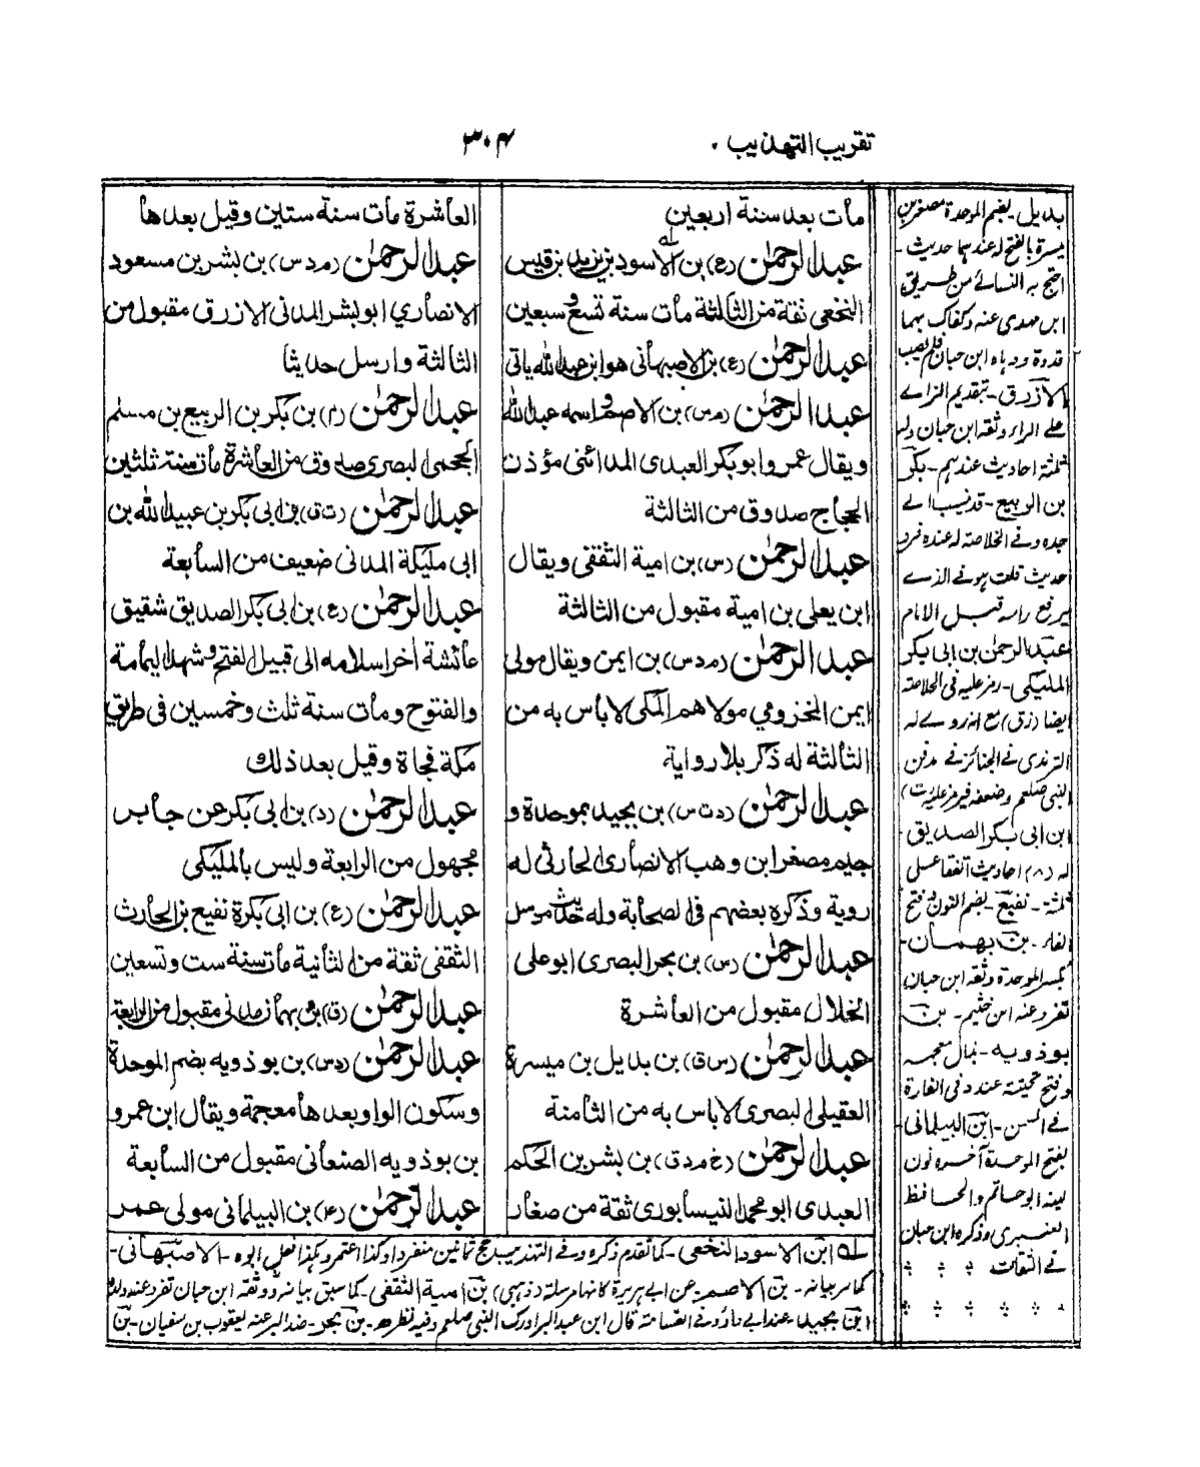 تقريب التهذيب ٣٠۴
مات بعد سنة اربعين
عبد الرحمٰن (ع) بن الاسود بن يزيد بن قيس
النخعي ثقة من الثالثة مات سنة تسع و سبعين
عبد الرحمٰن (ع) بن الاصبهانى هو ابن عبد الله ياتى
عبد الرحمٰن (م س) بن الاصم و اسمه عبد الله
ويقال عمرو ابو بكر العبدى المدائنى مؤذن
الحجاج صدوق من الثالثة
عبد الرحمٰن (س) بن امية الثقفى ويقال
ابن يعلى بن امية مقبول من الثالثة
عبد الرحمٰن (م د س) بن ايمن ويقال مولى
ايمن المخزومي مولاهم المكى لا بأس به من
الثالثة له ذكر بلا رواية
عبد الرحمٰن (د ت س) بن بجيد بموحدة و
جيم مصغر ابن وهب الانصارى الحارثى له
روية و ذكره بعضهم فى الصحابة وله حديث مرسل
عبد الرحمٰن (س) بن بحر البصرى ابو على
الخلال مقبول من العاشرة
عبد الرحمٰن (س ق) بن بديل بن ميسرة
العقيلى البصرى لا باس به من الثامنة
عبد الرحمٰن (خ م د ق) بن بشر بن الحكم
العبدى ابو محمد النيسابورى ثقة من صغار
العاشرة مات سنة ستين وقيل بعدها
عبد الرحمٰن (م د س) بن بشر بن مسعود
الانصاري ابو بشر المدنى الازرق مقبول من
الثالثة وارسل حديثا
عبد الرحمٰن (م) بن بكر بن الربيع بن مسلم
الجمحى البصرى صدوق من العاشرة مات سنة ثلثين
عبد الرحمٰن (ت ق) بن ابى بكر بن عبيد الله بن
ابى مليكة المدنى ضعيف من السابعة
عبد الرحمٰن (ع) بن ابى بكر الصديق شقيق
عائشة أخر اسلامه الى قبيل الفتح وشهد اليمامة
والفتوح ومات سنة ثلث وخمسين فى طريق
مكة فجاة وقيل بعد ذلك
عبد الرحمٰن (د) بن ابى بكر عن جابر
مجهول من الرابعة وليس بالمليكى
عبد الرحمٰن (ع) بن ابى بكرة نفيع بن الحارث
الثقفى ثقة من الثانية مات سنة ست وتسعين
عبد الرحمٰن (ق) بن بهمان مدنى مقبول من الرابعة
عبد الرحمٰن (د س) بن بوذويه بضم الموحدة
وسكون الواو بعدها معجمة ويقال ابن عمرو
بن بوذويه الصنعانى مقبول من السابعة
عبد الرحمٰن (٤) بن البيلمانى مولى عمر
بديل - بضم الموحدة مصغر بن
ميسرة بالفتح له عندهما حديث -
احتج به النسائے من طريق
ابن مهدى عنه وكفاك بهما
قدوة ورباه ابن حبان فلم يصب
الازرق - بتقديم الزاے
علے الراء وثقه ابن حبان وله
ثلثة احاديث عندهم - بكر
بن الربيع - قد نسب الے
جده وفے الخلاصة له عنده فرد
حديث قلت هو فے الذے
يرفع راسه قبل الامام
عبد الرحمٰن بن ابى بكر
المليكى - رمز عليه فى الخلاصة
ايضا (ز ق) مع انه روے له
الترمذى فے الجنائز فے مدفن
النبى صلعم وضعفه فيرمز عليه (ت)
ابن ابى بكر الصديق
له (٨) احاديث اتفقا على
ثلثة - نفيع - بضم النون وفتح
الفاء - بن بهمان -
بكسر الموحدة وثقه ابن حبان
تفرد عنه ابن خثيم - بن
بوذويه - بذال معجمة
وفتح تحتية عند د فى الفارة
فے السمن - ابن البيلمانى
بفتح الموحدة آخره نون
لينه ابو حاتم والحافظ
العنبرى و ذكره ابن حبان
فے الثقات
له ابن الاسود النخعى - كما تقدم ذكره وفے التهذيب حج ثمانين منفردا وكذا اعتمر وهكذا فعل ابوه - الاصبهانى -
كما مر بيانه - بن الاصم - عن ابے هريرة كانها مرسلة (ذهبى) بن امية الثقفى - كما سبق بيانه وثقه ابن حبان تفرد عنه ولده
ابن بجيد - عند ابے داؤد فے القسامة قال ابن عبد البر ادرك النبى صلعم وفيه نظر - بن بحر - ضد البر عنه يعقوب بن سفيان - بن